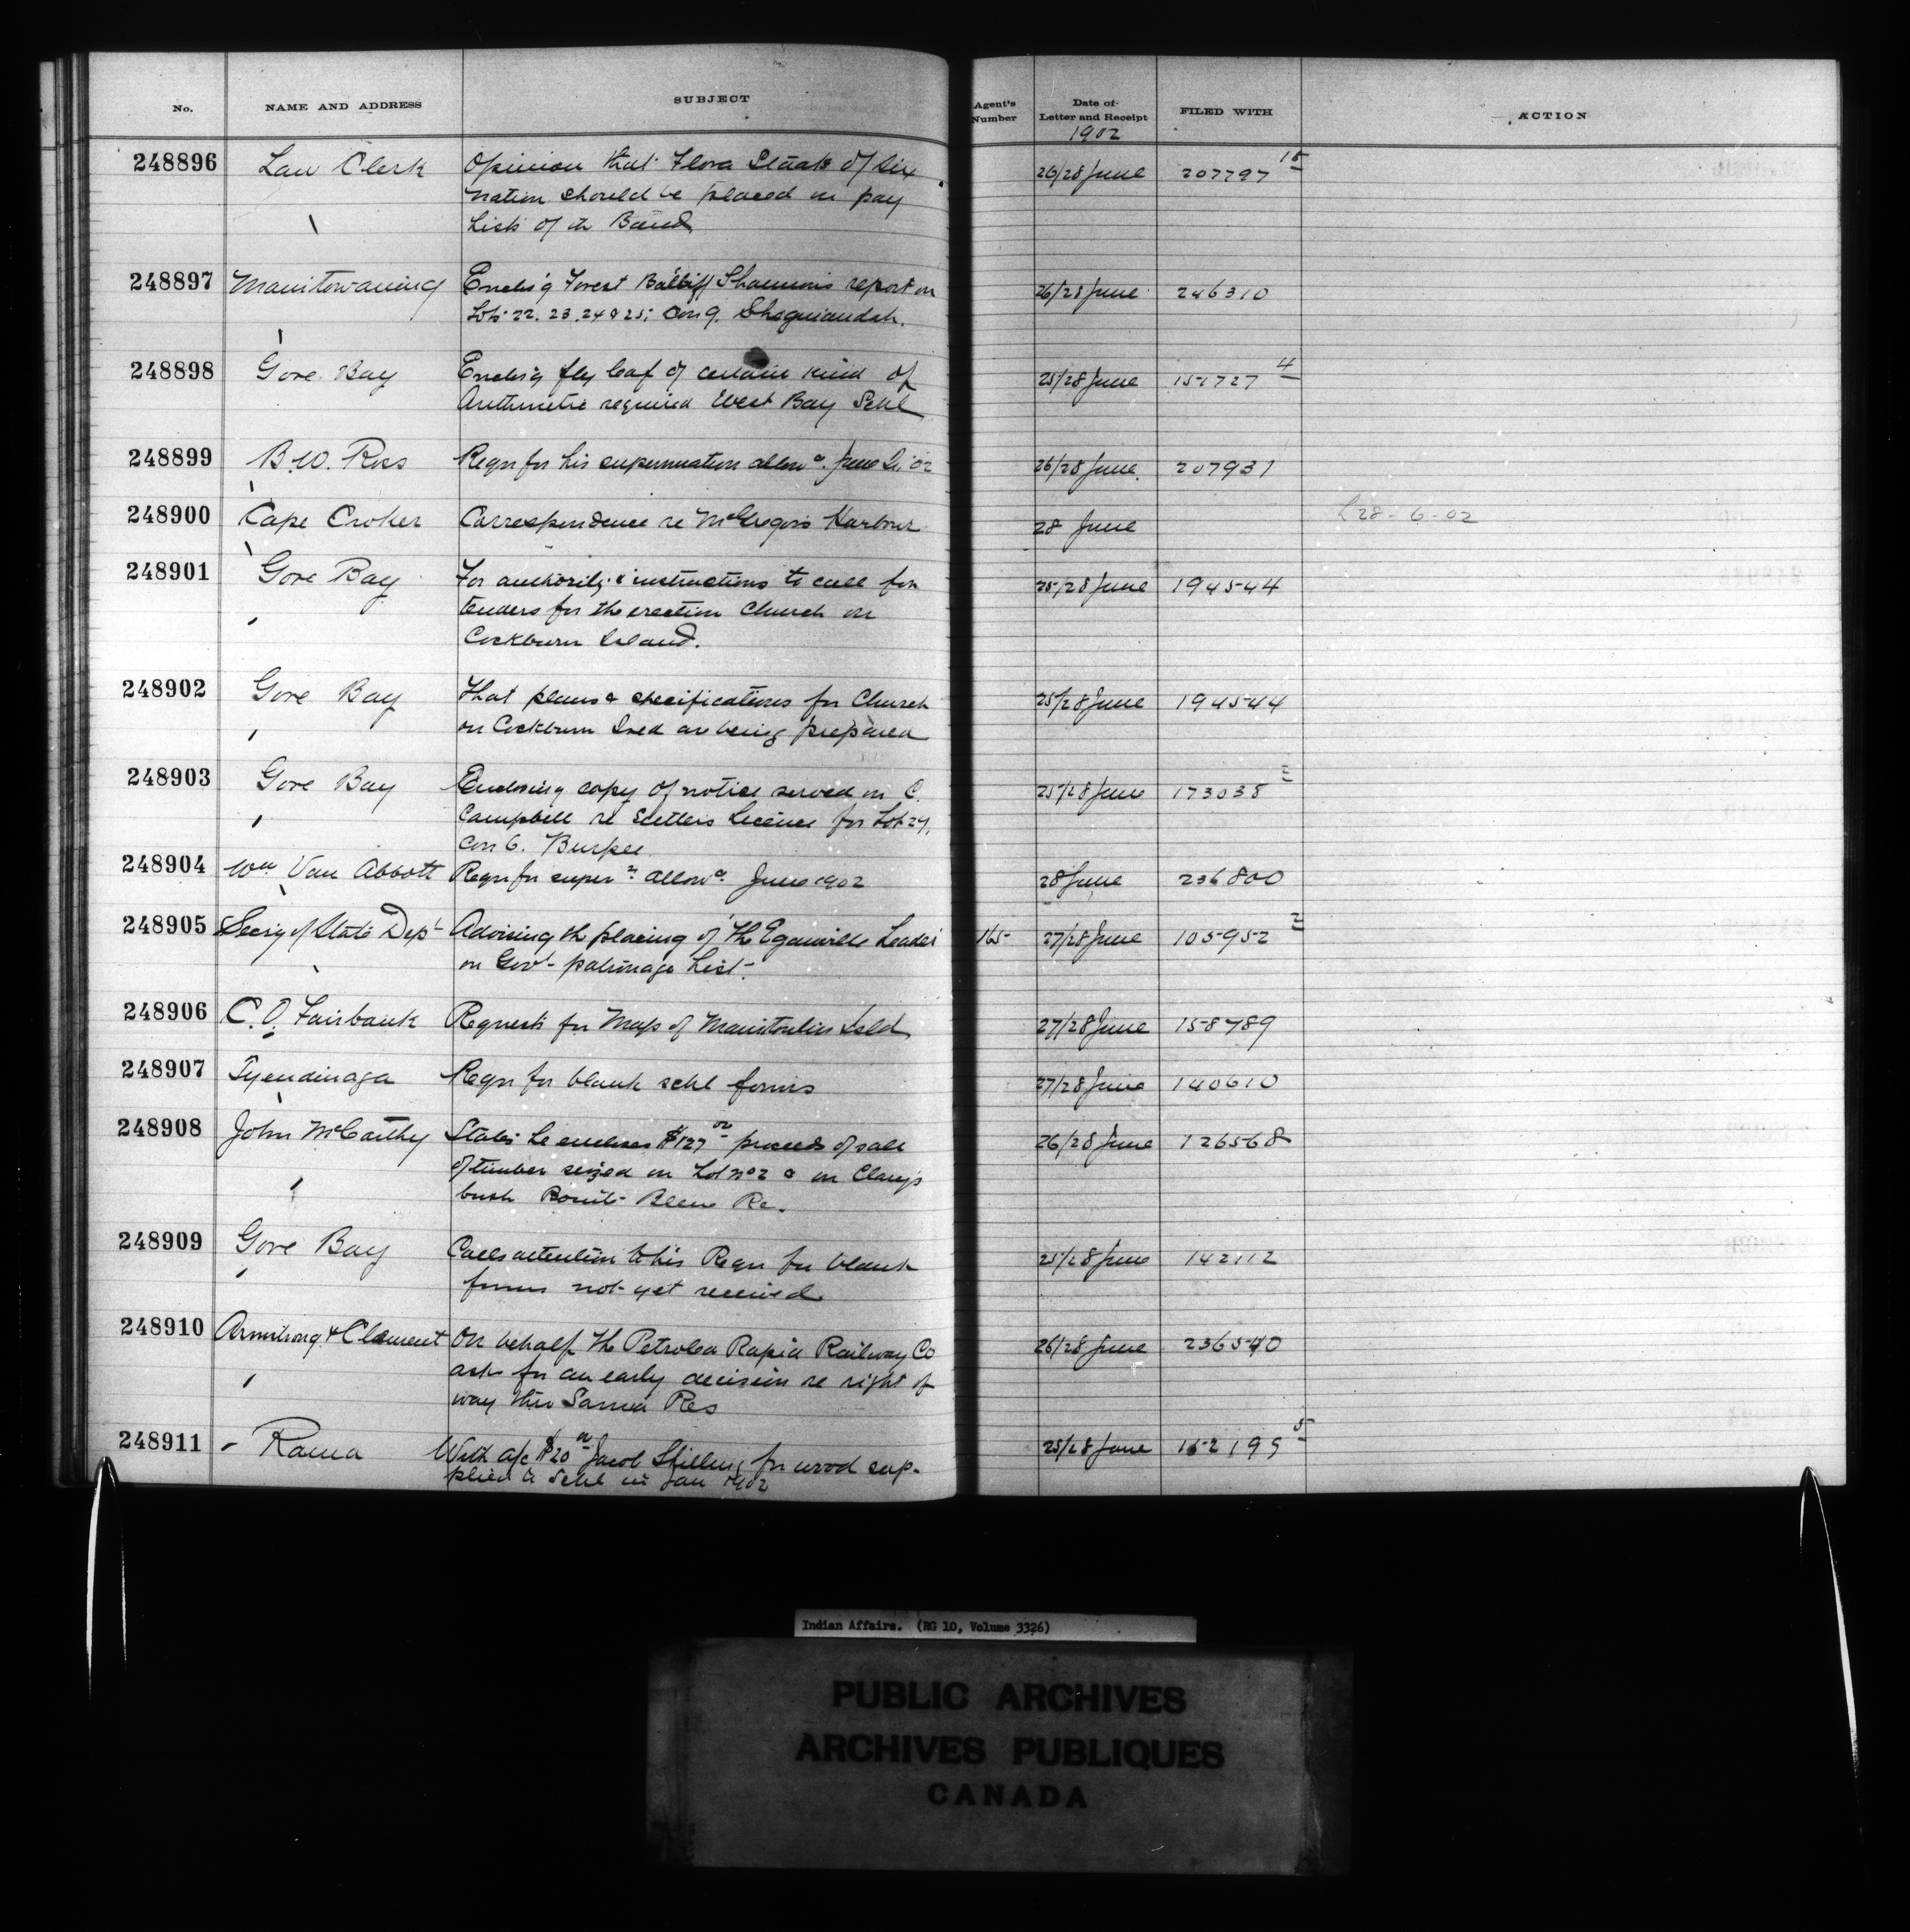 No. NAME AND ADDRESS SUBJECT Agent's Number Date of Letter and Receipt FILED WITH ACTION
1902
248896 Law Clerk Opinion that Flora Staats of Six 26/28 June 207797 15
nation should be placed on pay
Lists of th Band
248897 Manitowaning Enclos'g Forest Bailiff Shannons report on 26/28 June 246310
Lots 22. 23. 24 & 25; Con 9. Sheguiandah.
248898 Gore Bay Enclos'g fly leaf of certain kind of 25/28 June 151727 4
Arithmetic required West Bay Schl
248899 B.W. Ross Reqn for his superannuation allowa. June 02 26/28 June 207931
248900 Cape Croker Correspondence re McGregors Harbour 28 June L 28-6-02
248901 Gore Bay For authority & instructions to call for 25/28 June 194544
tenders for the erection Church on
Cockburn Island.
248902 Gore Bay That plans & specifications for Church 25/28 June 194544
on Cockburn Isld are being prepared
248903 Gore Bay Enclosing copy of notice served on C. 25/28 June 173038
Campbell re Settlers Licence for Lot 27,
Con 6. Burpee
248904 Wm Van Abbott Reqn for supern allowa. June 1902 28 June 236800
248905 Secry of State Dept Advising th placing of 'The Eganville Leader 165 27/28 June 105952 2
on Govt patronage List.
248906 C.O. Fairbank Requests for Map of Manitoulin Isld 27/28 June 158789
248907 Tyendinaga Reqn for blank schl forms 27/28 June 140610
248908 John McCarthy States he encloses $127 proceeds of sale 26/28 June 126568
of timber seized on Lot no 2 & on
bush Re.
248909 Gore Bay Calls attention to his Reqn for blank 25/28 June 142112
forms not yet received
248910 Armstrong & Clement On behalf the Petrolea Rapid Railway Co 26/28 June 236540
asks for an early decision re right of
way thro Sarnia Res
248911 Rama With a/c $20 Jacob Shilling for wood sup- 25/28 June 162199 5
plied to Schl in Jan 1902
Indian Affairs. (RG 10, Volume 3326)
PUBLIC ARCHIVES
ARCHIVES PUBLIQUES
CANADA